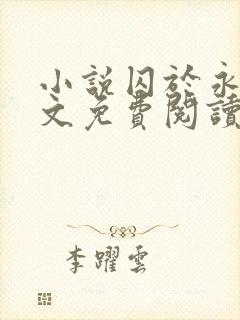 小說囚於永
文免費閱讀
李躍雲